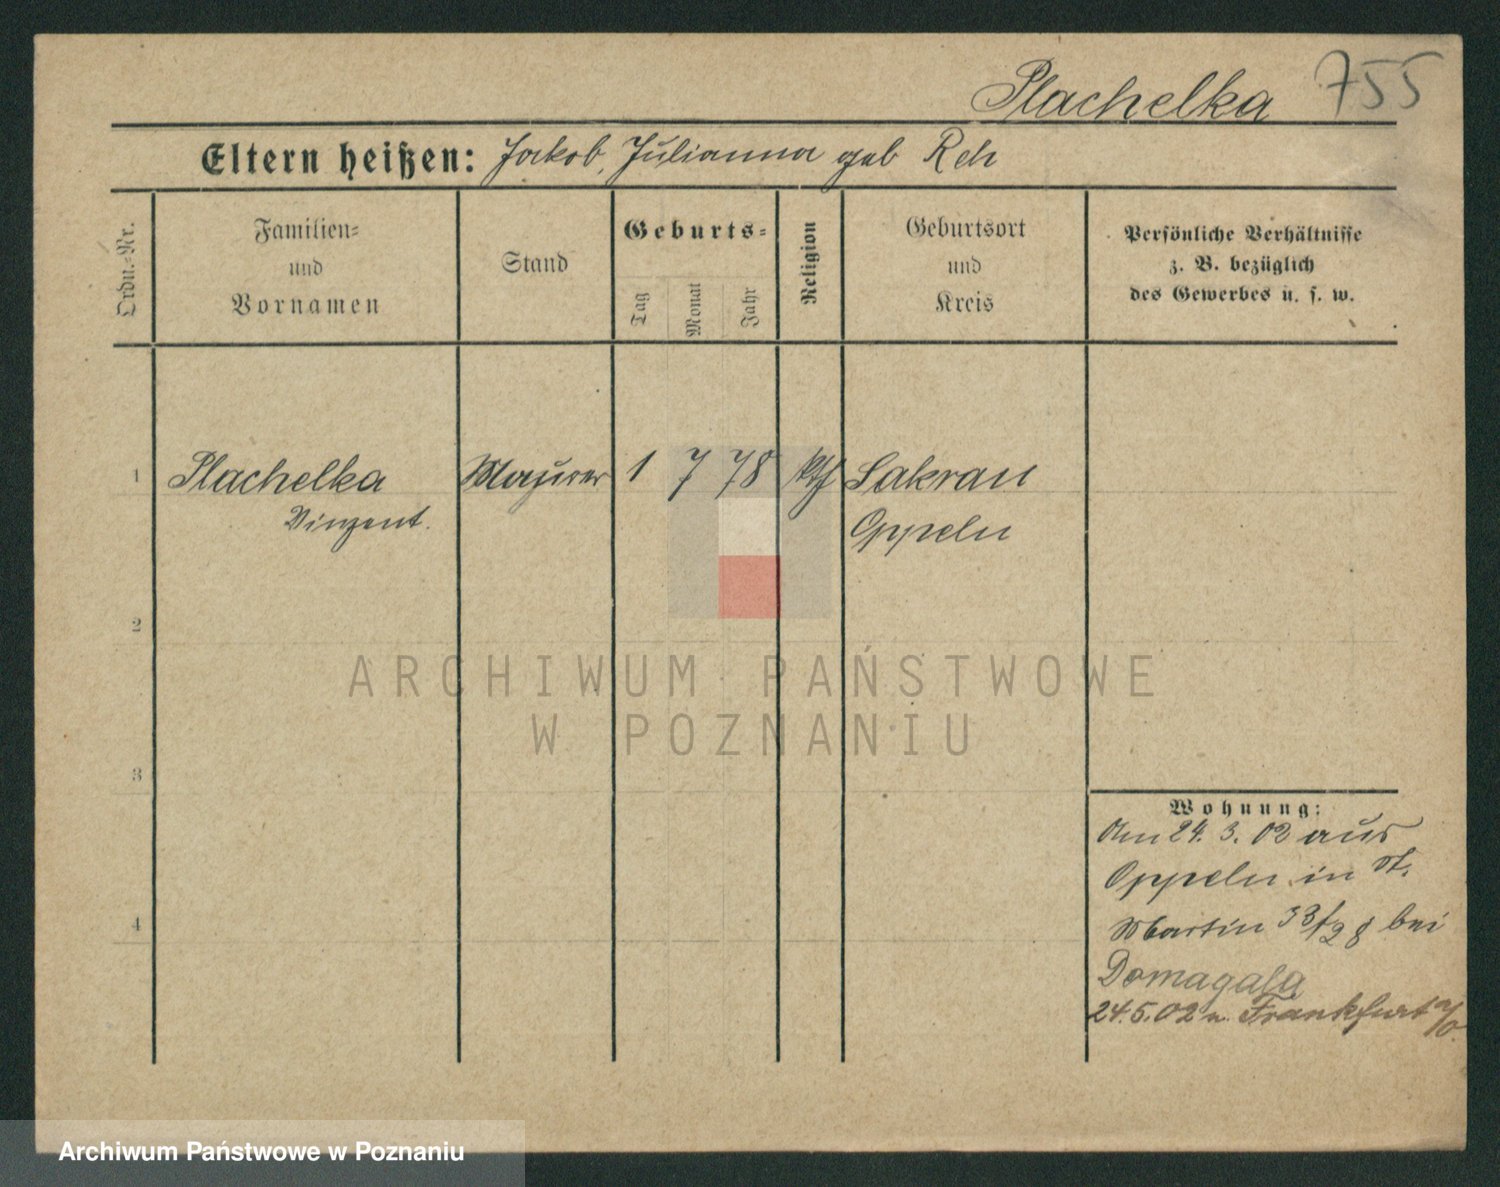 Plachelka 755
Eltern heißen: Jakob, Julianna geb Reh
Ordn.-Nr.
Familien-
und
Vornamen
Stand
Geburts-
Tag
Monat
Jahr
Religion
Geburtsort
und
Kreis
Persönliche Verhältnisse
z. B. bezüglich
des Gewerbes u. s. w.
1 Plachelka Maurer 1 7 78 kth Sakrau
Vinzent. Oppeln
2
3
4
Wohnung:
Am 24. 3. 02 aus
Oppeln in St.
Martin 33/28 bei
Domagala
24.5.02 n. Frankfurt a/O.
ARCHIWUM PAŃSTWOWE
W POZNANIU
Archiwum Państwowe w Poznaniu